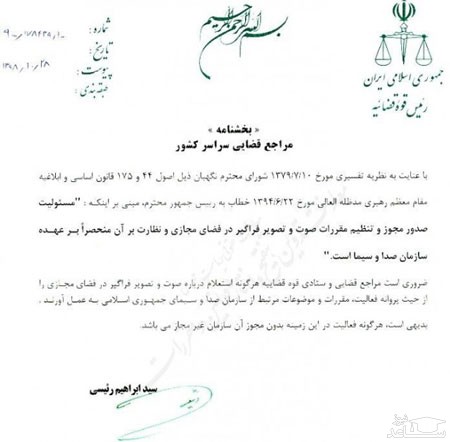 بسم الله الرحمن الرحیم
جمهوری اسلامی ایران
رئیس قوه قضائیه
شماره :
تاریخ :
پیوست :
طبقه بندی :
« بخشنامه »
مراجع قضایی سراسر کشور
با عنایت به نظریه تفسیری مورخ ۱۳۷۹/۷/۱۰ شورای محترم نگهبان ذیل اصول ۴۴ و ۱۷۵ قانون اساسی و ابلاغیه
مقام معظم رهبری مدظله العالی مورخ ۱۳۹۴/۶/۲۲ خطاب به رییس جمهور محترم، مبنی بر اینکه : "مسئولیت
صدور مجوز و تنظیم مقررات صوت و تصویر فراگیر در فضای مجازی و نظارت بر آن منحصراً بر عهده
سازمان صدا و سیما است."
ضروری است مراجع قضایی و ستادی قوه قضاییه هرگونه استعلام درباره صوت و تصویر فراگیر در فضای مجازی را
از حیث پروانه فعالیت، مقررات و موضوعات مرتبط از سازمان صدا و سیمای جمهوری اسلامی به عمل آورند .
بدیهی است، هرگونه فعالیت در این زمینه بدون مجوز آن سازمان غیر مجاز می باشد.
سید ابراهیم رئیسی